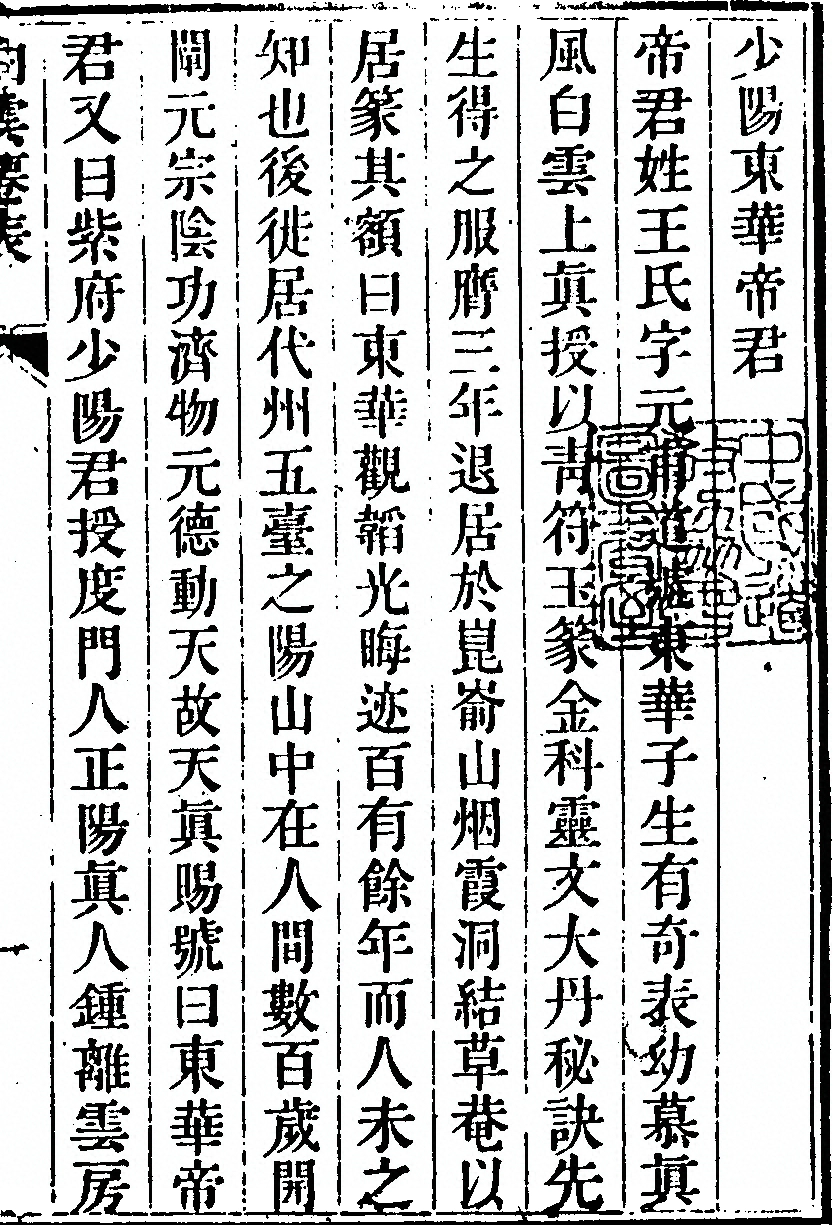 少陽東華帝君
帝君姓王氏字元甫道號東華子生有奇表幼慕眞
風白雲上眞授以靑符玉篆金科靈文大丹秘訣先
生得之服膺三年退居於崑嵛山烟霞洞結草菴以
居篆其額曰東華觀韜光晦迹百有餘年而人未之
知也後徙居代州五臺之陽山中在人間數百歲開
闡元宗陰功濟物元德動天故天眞賜號曰東華帝
君又曰紫府少陽君授度門人正陽眞人鍾離雲房